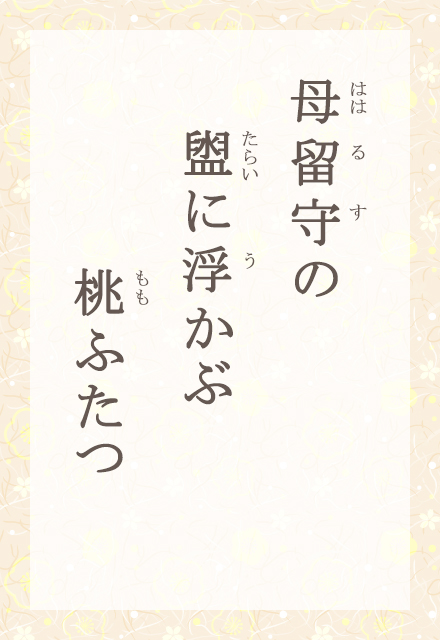 母留守の
盥に浮かぶ
桃ふたつ
はは る す
たらい う
もも